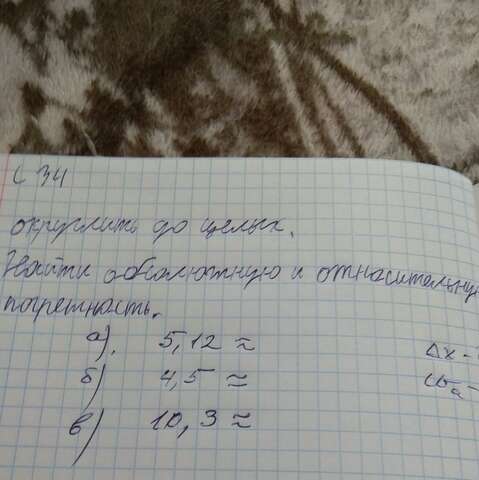 с 34
округлить до целых.
Найти абсолютную и относительную
погрешность.
а). 5,12 ≈
б) 4,5 ≈
в) 10,3 ≈
Δx -